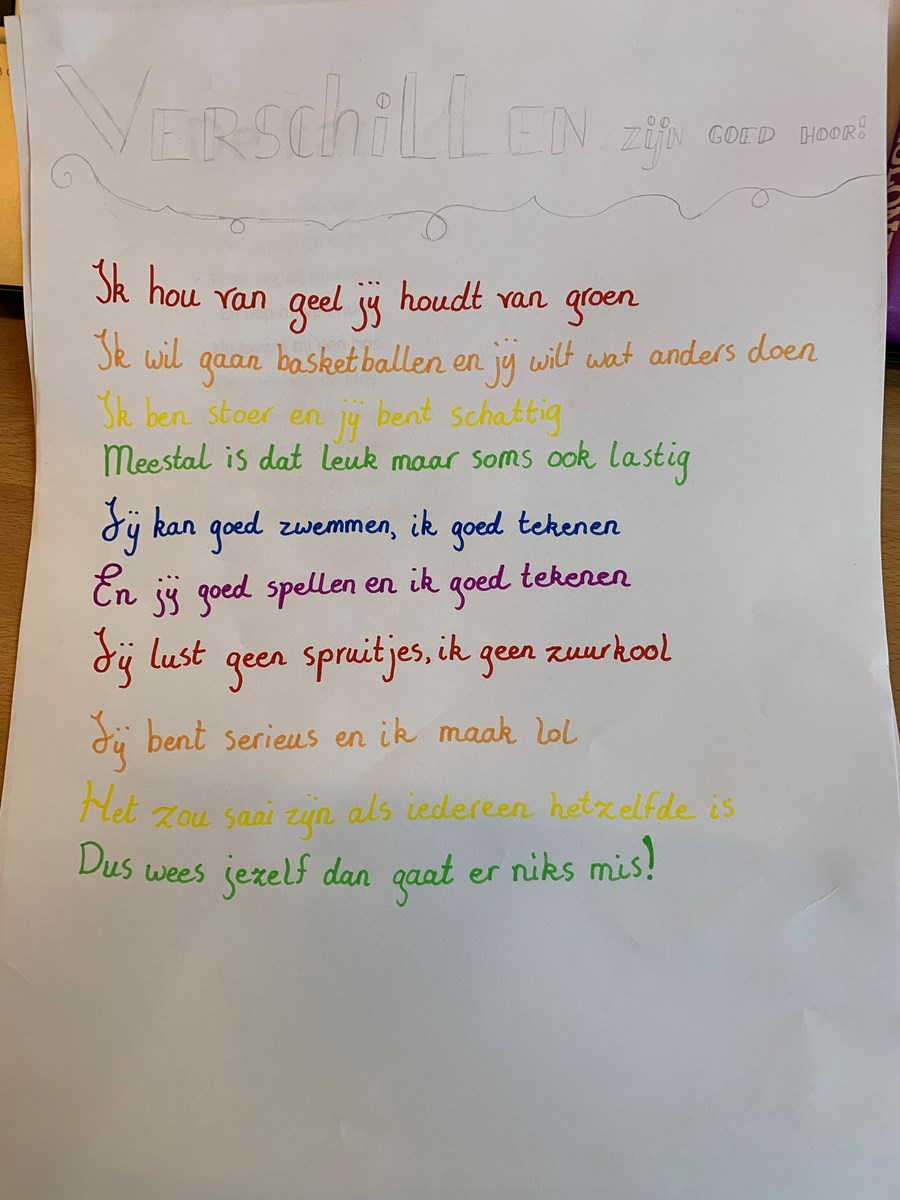 VERSCHILLEN ZIJN GOED HOOR!
Ik hou van geel jij houdt van groen
Ik wil gaan basketballen en jij wilt wat anders doen
Ik ben stoer en jij bent schattig
Meestal is dat leuk maar soms ook lastig
Jij kan goed zwemmen, ik goed tekenen
En jij goed spellen en ik goed tekenen
Jij lust geen spruitjes, ik geen zuurkool
Jij bent serieus en ik maak lol
Het zou saai zijn als iedereen hetzelfde is
Dus wees jezelf dan gaat er niks mis!